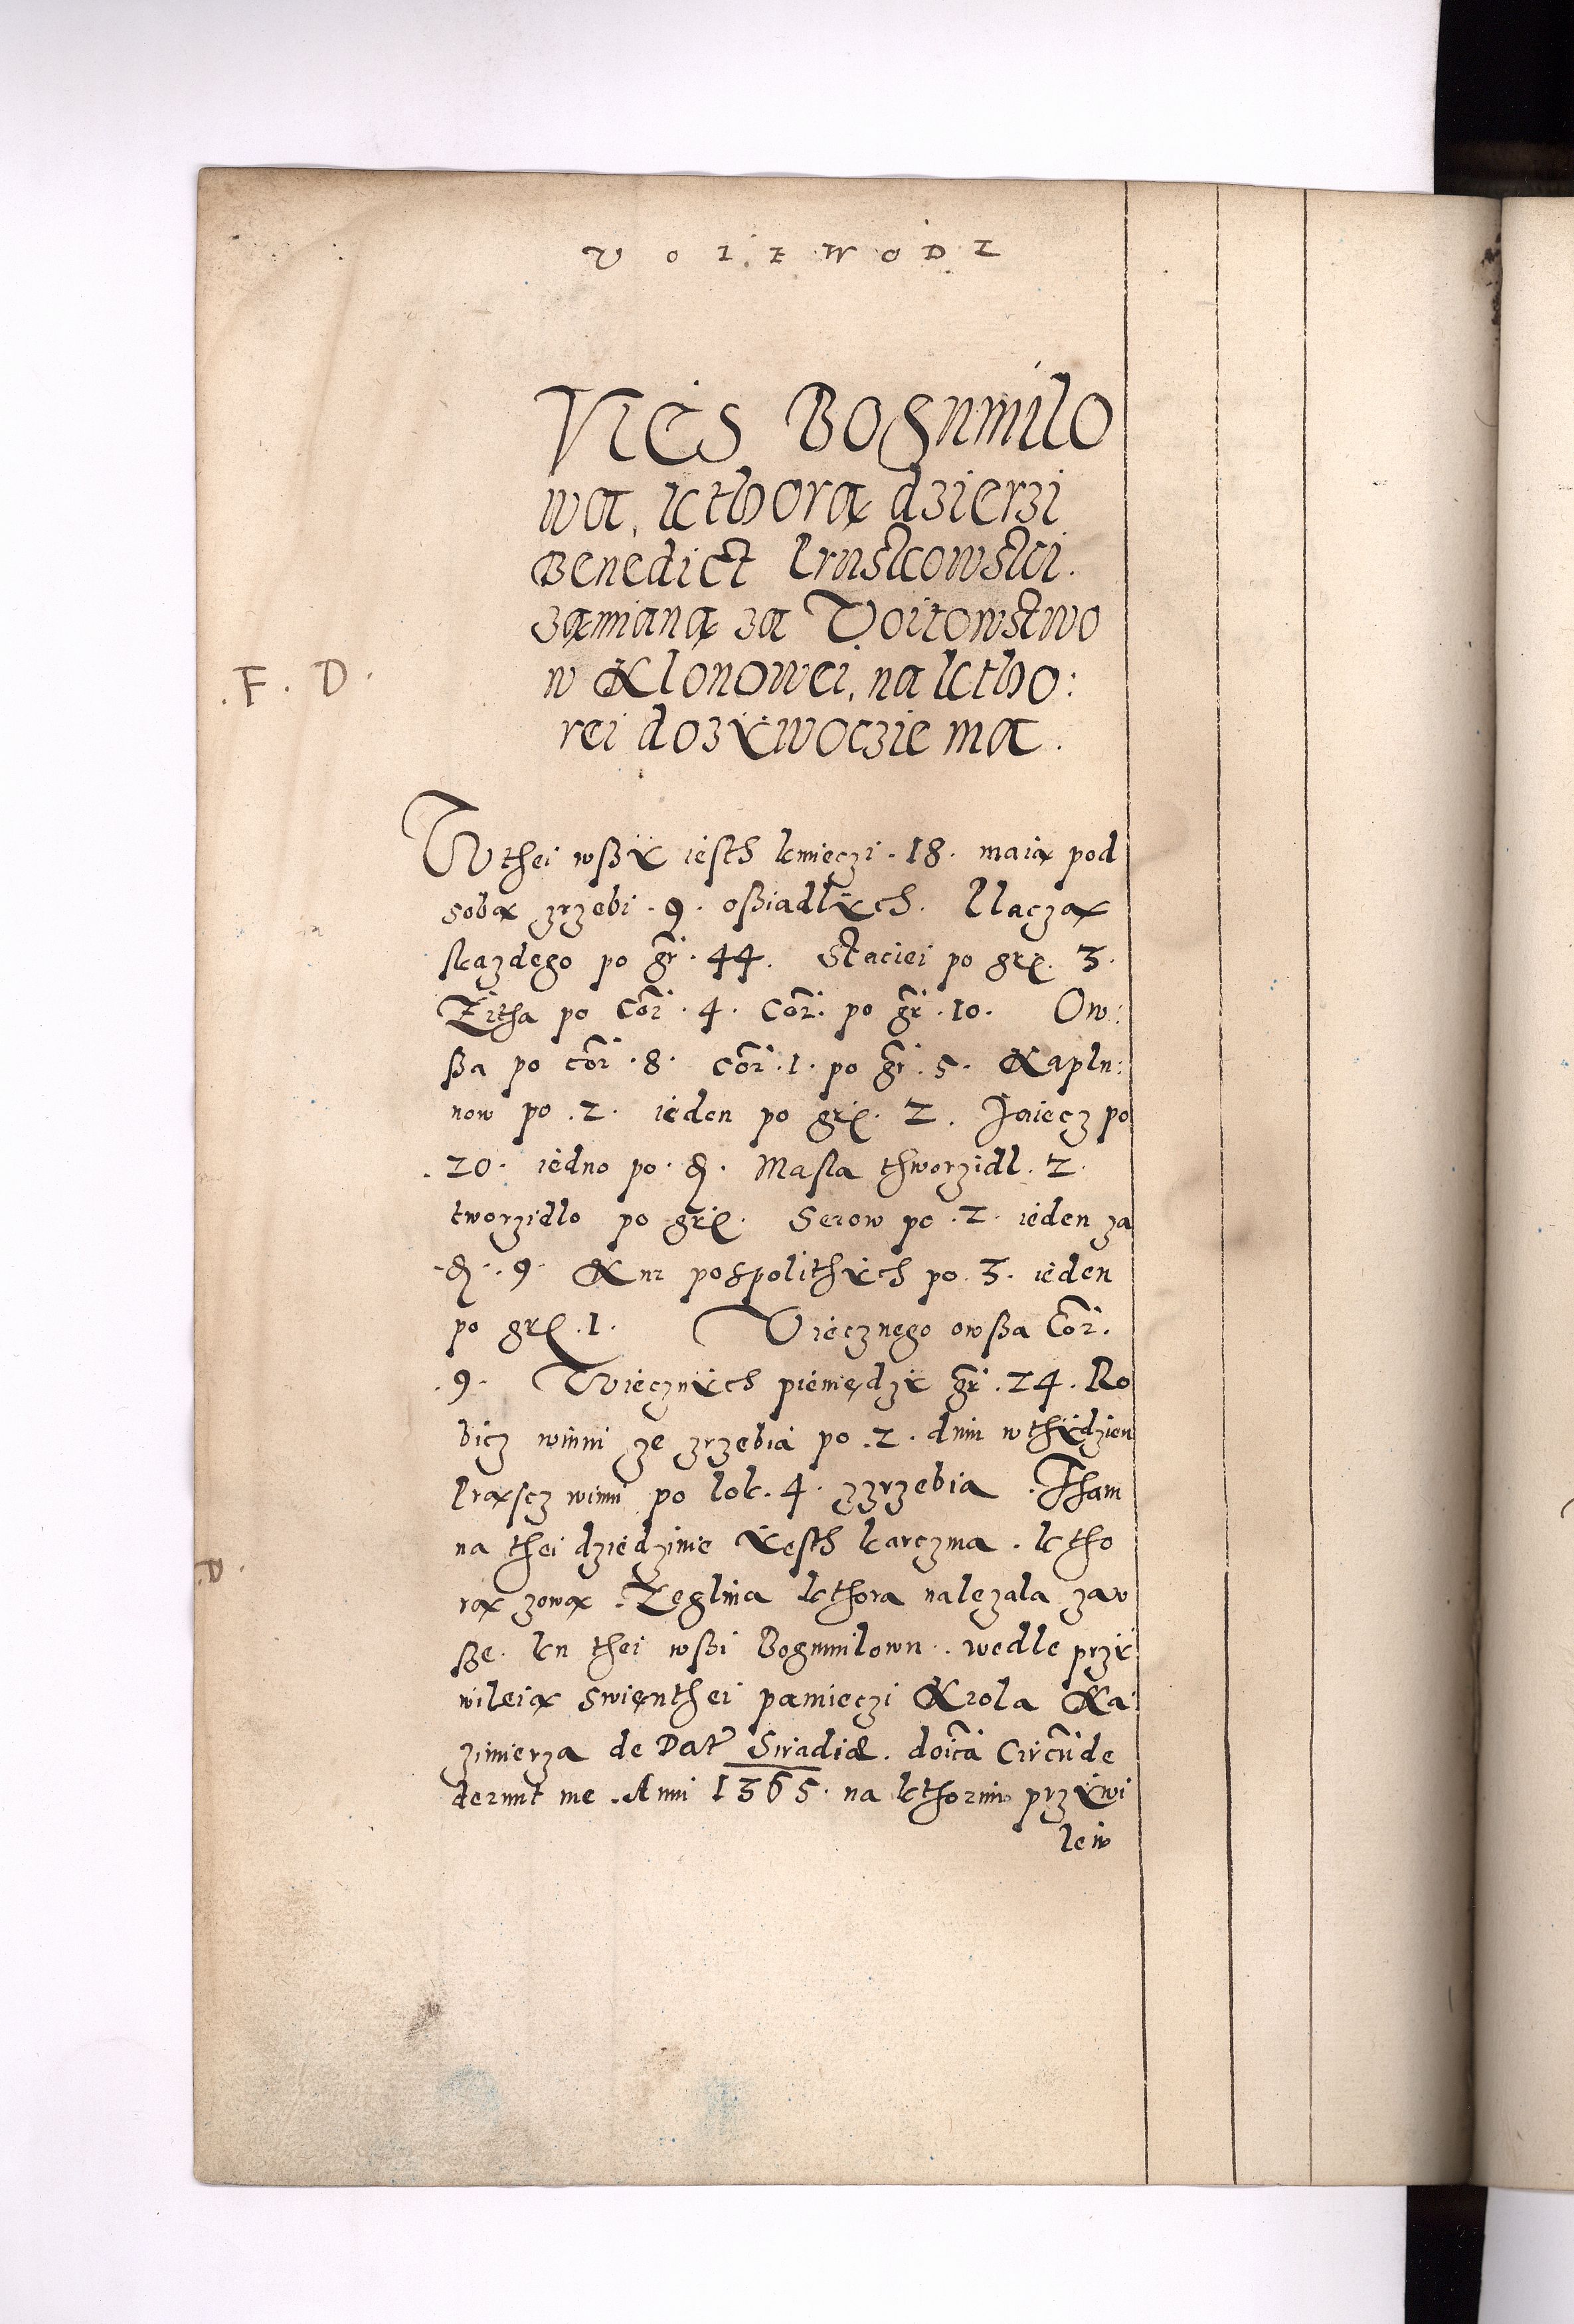 VOIEWODZ
Vies Bogumilo
wa, kthorą dzierzi
Benedict Pruskowski.
zamianą za Voitowstwo
w Klonowei, na ktho:
.F. D.
rei dozÿwoczie ma.
W thei wßÿ iesth kmieczi .18. maią pod
sobą zrzebi .9. oßiadlÿch. Placzą
skazdego po gr̃ .44. Staciei po grꝭ. 3.
Zitha po Cor̃ .4. Cor̃. po gr̃ .10. Ow:
ßa po cor̃ .8. cor̃ .1. po gr̃ .5. Kaplu:
now po .2. ieden po grꝭ. 2. Jaiecz po
.20. iedno po . ₰. Masla thworzidl .2.
tworzidlo po grꝭ. Serow po .2. ieden za
.₰. .9. Kur pospolithÿch po .3. ieden
po grꝭ .1. Viecznego owßa Cor̃.
.9. Wiecznÿch pieniędzÿ gr̃ .24. Ro
bicz winni ze zrzebia po .2. dnin w thÿdzien
Prąscz winni po lok .4. zzrzebia .Tham
na thei dziedzinie ÿesth karczma . ktho
.D.
rą zową .Zeglina kthora nalezala zaw
ße. ku thei wßi Bogumilowu . wedle przÿ
wileią swięnthei pamieczi Krola Ka:
zimierza de Dat̃ Siradiæ. doi̅ca Circu̅de
derunt me .Anni 1365. na kthorim przÿwi
leiu